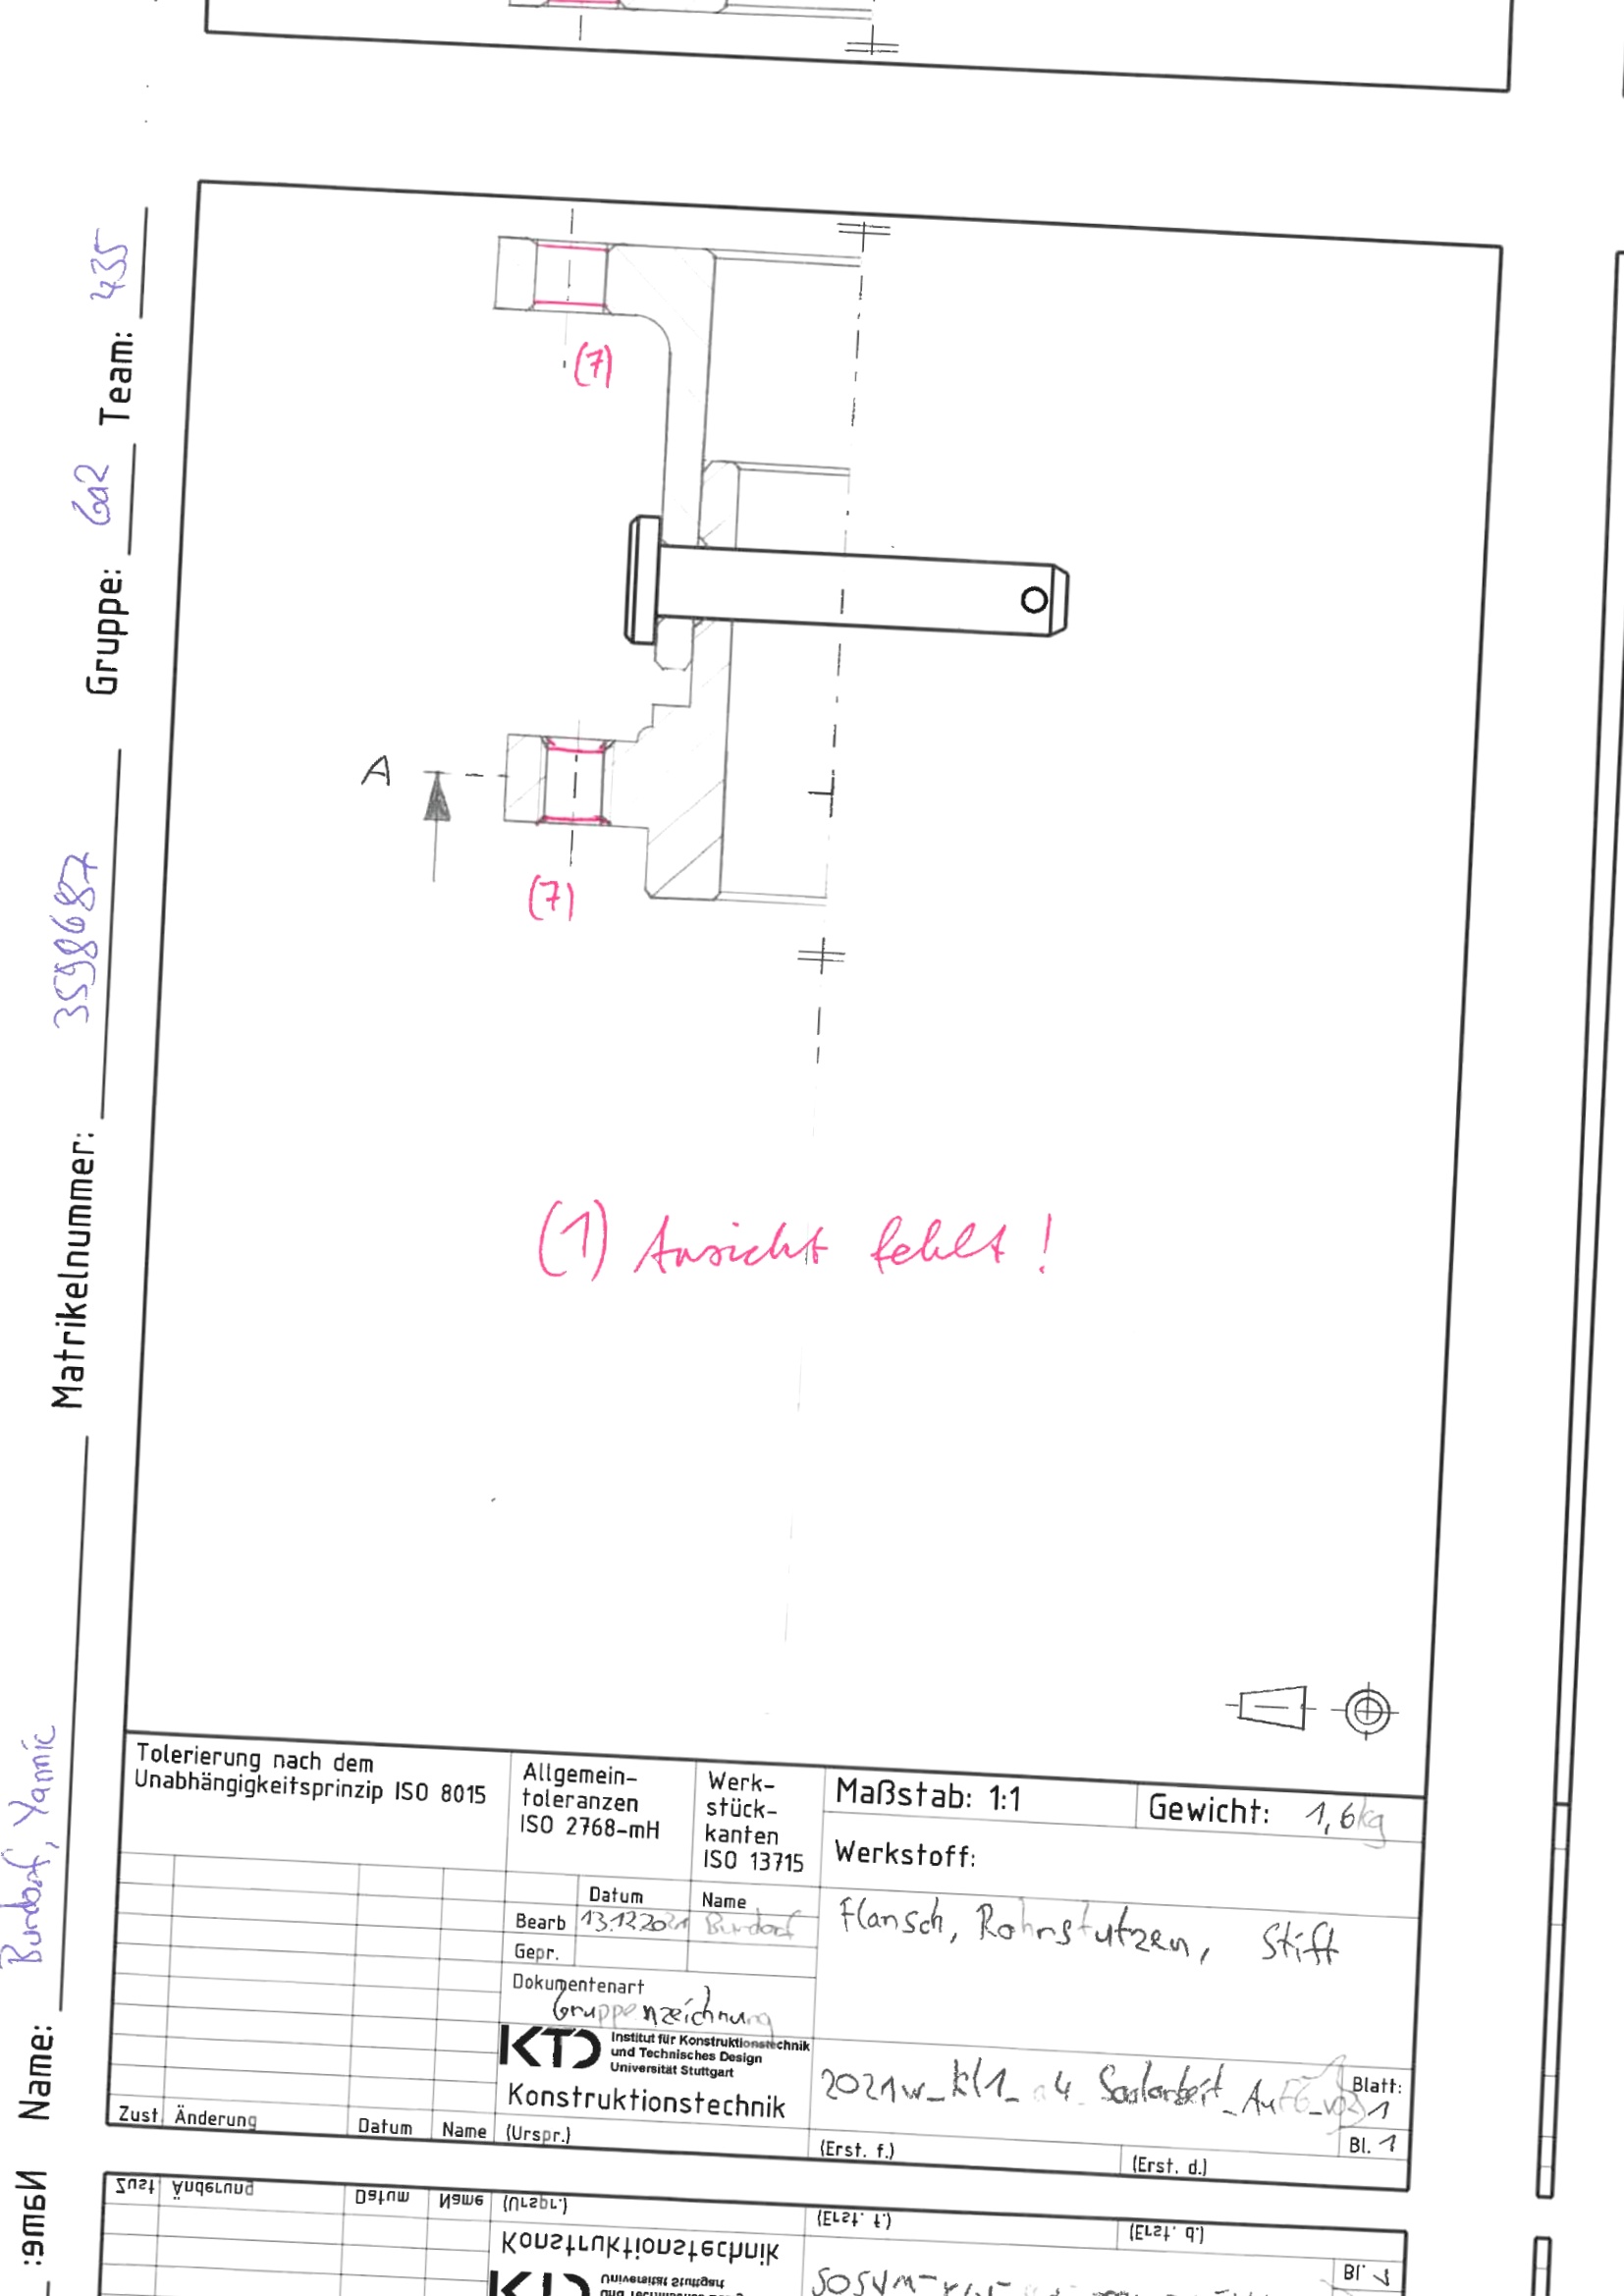 Name: Burdorf, Yannic Matrikelnummer: 3598687 Gruppe: 6a2 Team: 435
(7)
A
(7)
(1) Ansicht fehlt!
Tolerierung nach dem
Unabhängigkeitsprinzip ISO 8015
Allgemein-
toleranzen
ISO 2768-mH
Werk-
stück-
kanten
ISO 13715
Maßstab: 1:1
Gewicht: 1,6kg
Werkstoff:
Datum Name
Bearb 13.12.2021 Burdorf
Gepr.
Flansch, Rohrstutzen, Stift
Dokumentenart
Gruppenzeichnung
KTD
Institut für Konstruktionstechnik
und Technisches Design
Universität Stuttgart
Konstruktionstechnik
2021w_Kl1_a4_Saalarbeit_
Blatt:
1
Bl. 1
Zust Änderung Datum Name (Urspr.) (Erst. f.) (Erst. d.)
Zust Änderung Datum Name (Urspr.) (Erst. f.) (Erst. d.)
Konstruktionstechnik
Bl. 1
Universität Stuttgart
Name: